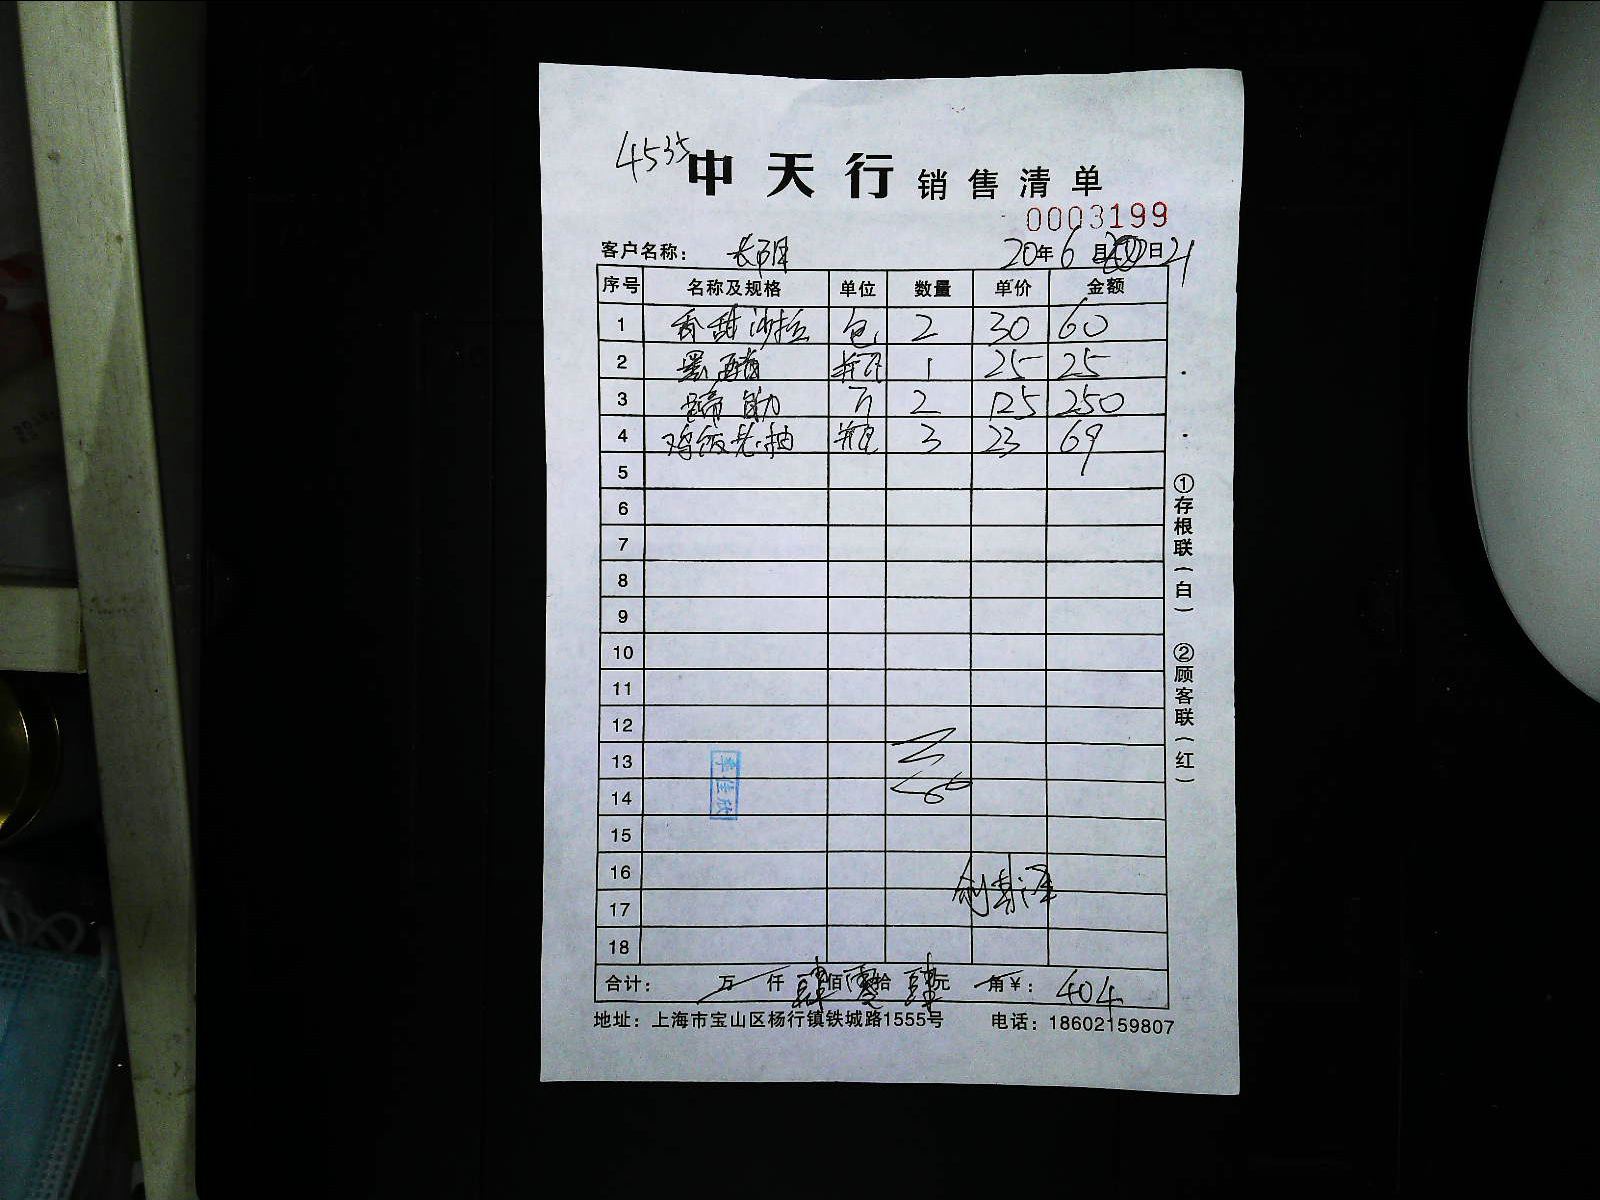 4535
中天行 销售清单
0003199
客户名称： 长阳 20年6月 日21
序号 名称及规格 单位 数量 单价 金额
1 香甜沙拉 包 2 30 60
2 黑醋 瓶 1 25 25
3 蹄筋 斤 2 125 250
4 鸡饭老抽 瓶 3 23 69
5
6
7
8
9
10
11
12
13
14
15
16
17
18
李佳欣
合计： 万 仟 肆佰零拾肆元 角￥： 404
地址：上海市宝山区杨行镇铁城路1555号 电话：18602159807
①存根联（白） ②顾客联（红）